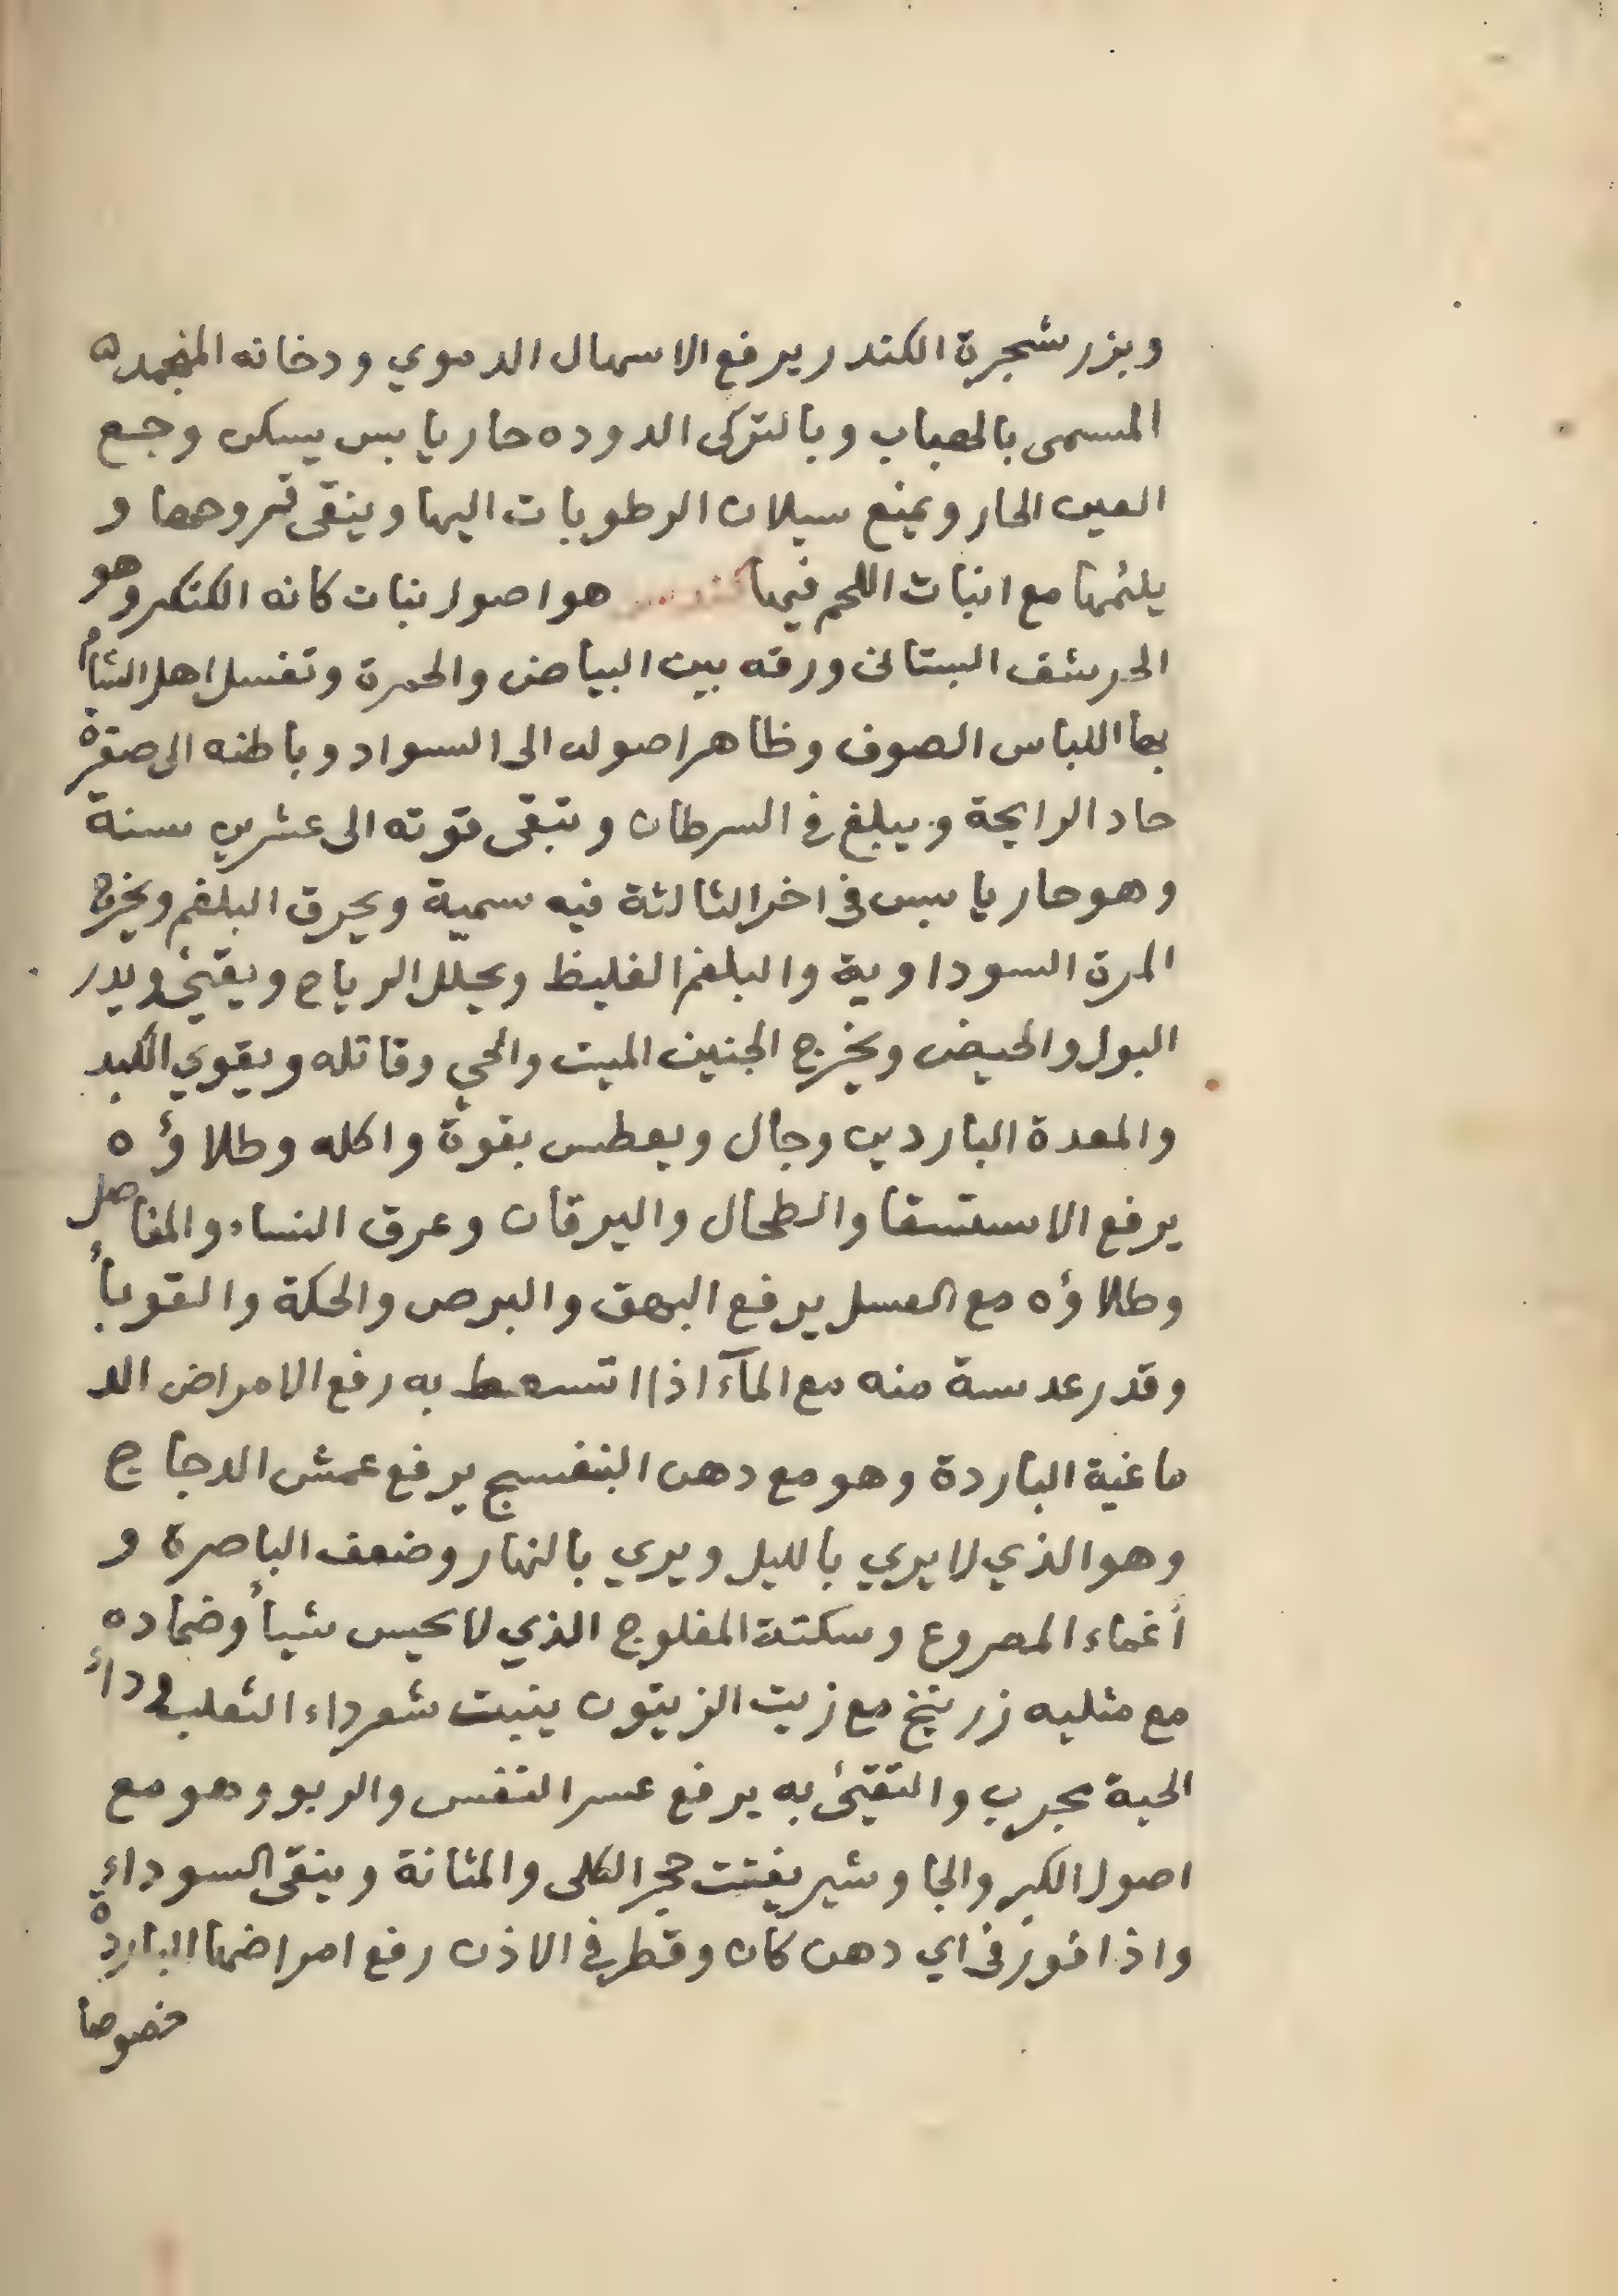 وبزر شجرة الكندر يرفع الاسهال الدموي ودخانه المنجمد
المسمى بالهباب وبالتركى الدوده حار يابس يسكن وجع
العين الحار ويمنع سيلان الرطوبات اليها وينقى قروحها و
يلئمها مع انبات اللحم فيها هو اصول نبات كانه الكنكر وهو
الحرشف البستانى ورقه بين البياض والحمرة وتغسل اهل الشام
بها اللباس الصوف وظاهر اصوله الى السواد وباطنه الى صفرة
حاد الرايحة ويبلغ فى السرطان وتبقى قوته الى عشرين سنة
وهو حار يابس فى اخر الثالثة فيه سمية ويحرق البلغم ويخرج
المرة السوداوية والبلغم الغليظ ويحلل الرياح ويقيئ ويدر
البول والحيض ويخرج الجنين الميت والحي وقاتله ويقوي الكبد
والمعدة الباردين وجال ويعطس بقوة واكله وطلاؤه
يرفع الاستسقا والطحال واليرقان وعرق النساء والمفاصل
وطلاؤه مع العسل يرفع البهق والبرص والحكة والقوبأ
وقدر عدسة منه مع المآء اذا اتسعط به رفع الامراض الد
ماغية الباردة وهو مع دهن البنفسج يرفع عمش الدجاج
وهو الذي لا يري بالليل ويري بالنهار وضعف الباصرة و
أغماء المصروع وسكتة المفلوج الذي لا يحيس شيأ وضماده
مع مثليه زرنيخ مع زيت الزيتون ينبت شعر داء الثعلب ودأ
الحية مجرب والتقيئ به يرفع عسر النفس والربو وهو مع
اصول الكبر والجاوشير يفتت حجر الكلى والمثانة وينقى السوداء
واذا فور فى اي دهن كان وقطر في الاذن رفع امراضها الباردة
خصوصا